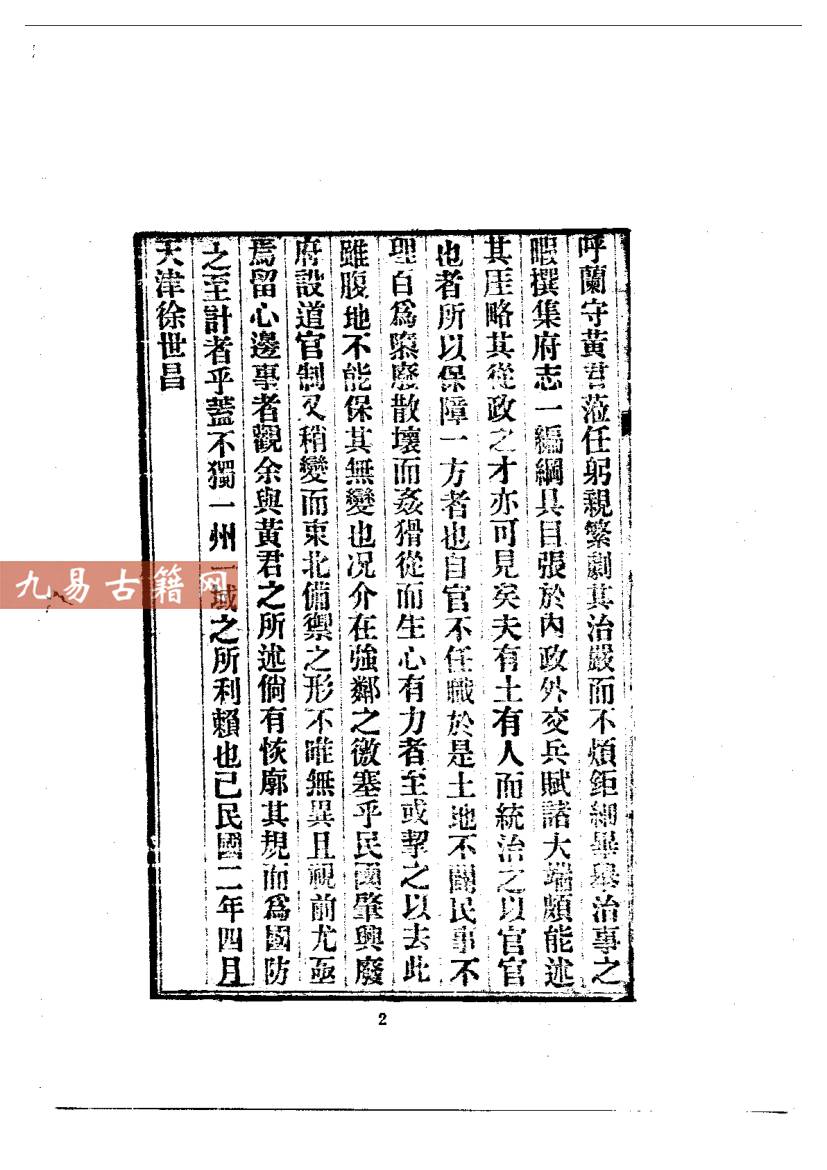 呼蘭守黃君蒞任躬親繁劇其治嚴而不煩鉅細畢舉治事之
暇撰集府志一編綱具目張於內政外交兵賦諸大端頗能述
其厓略其從政之才亦可見矣夫有土有人而統治之以官官
也者所以保障一方者也自官不任職於是土地不闢民事不
理百爲隳廢散壞而姦猾從而生心有力者至或挈之以去此
雖腹地不能保其無變也况介在強鄰之徼塞乎民國肇興廢
府設道官制又稍變而東北備禦之形不唯無異且視前尤亟
焉留心邊事者觀余與黃君之所述倘有恢廓其規而爲國防
之至計者乎葢不獨一州一域之所利賴也已民國二年四月
天津徐世昌
九易古籍网
2